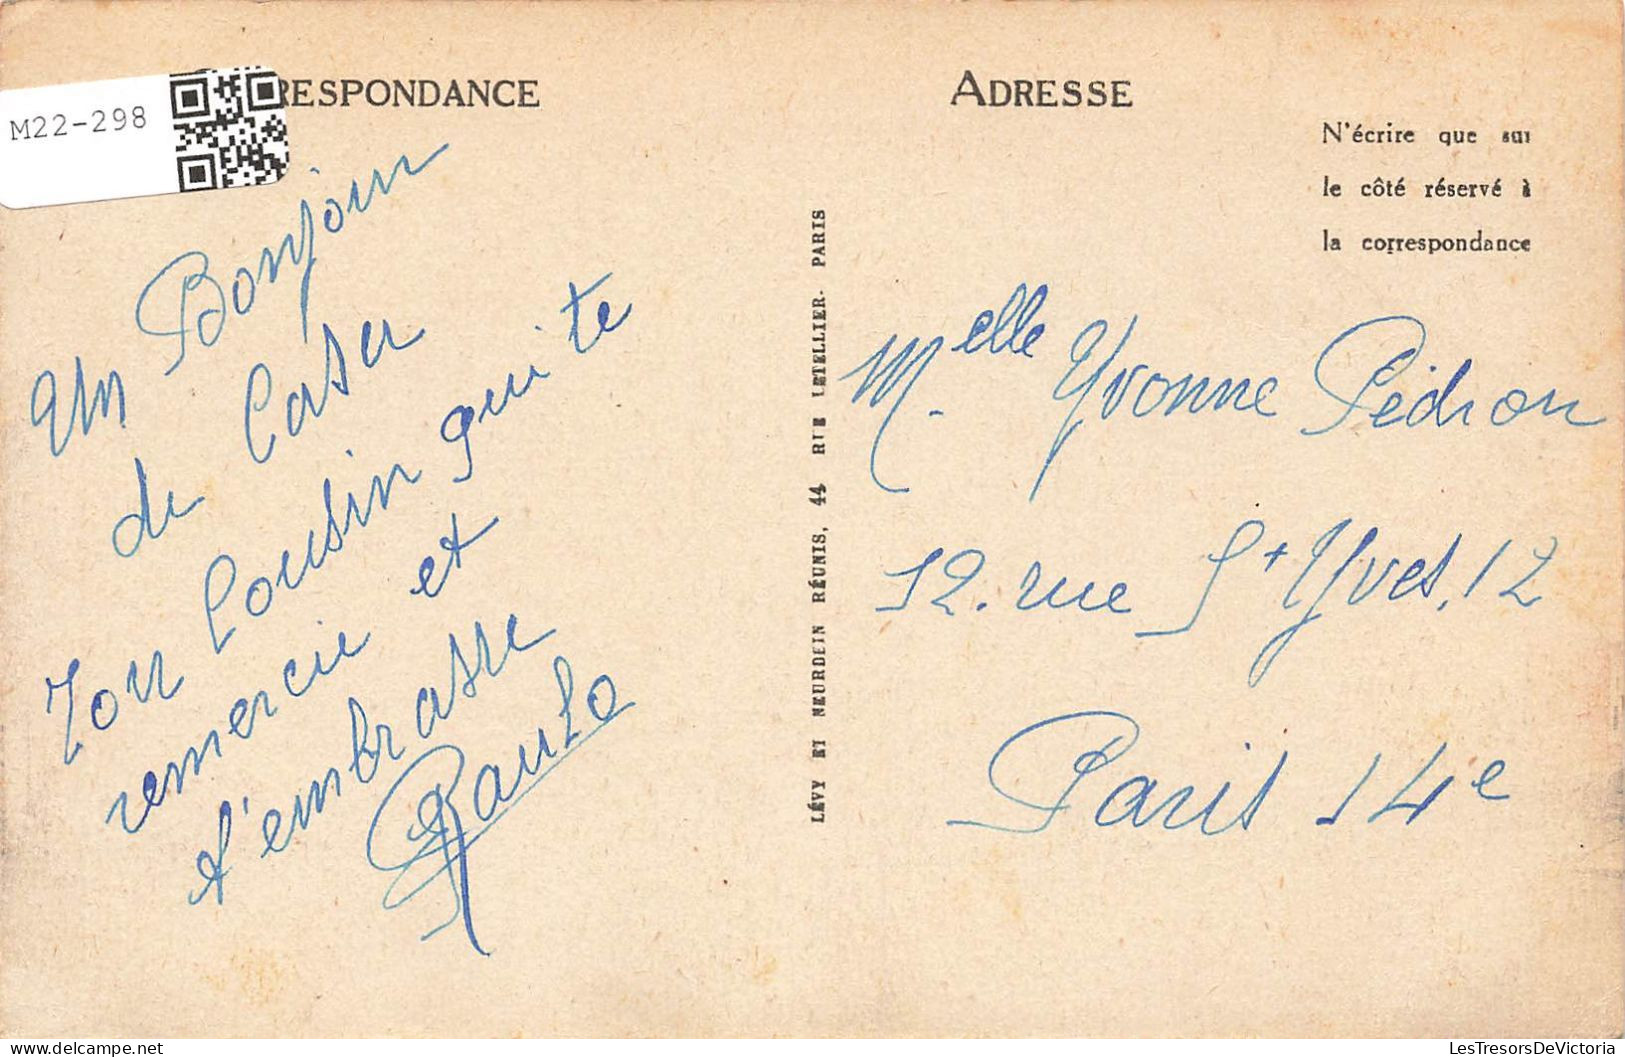 M22-298
RESPONDANCE
Un Bonjour
de Casa
Ton Cousin qui te
remercie et
t'embrasse
LÉVY ET NEURDEIN RÉUNIS, 44 RUE LETELLIER. PARIS
ADRESSE
N'écrire que sur
le côté réservé à
la correspondance
Melle Yvonne Pédron
12. rue St Yves, 12
Paris 14e
LesTresorsDeVictoria